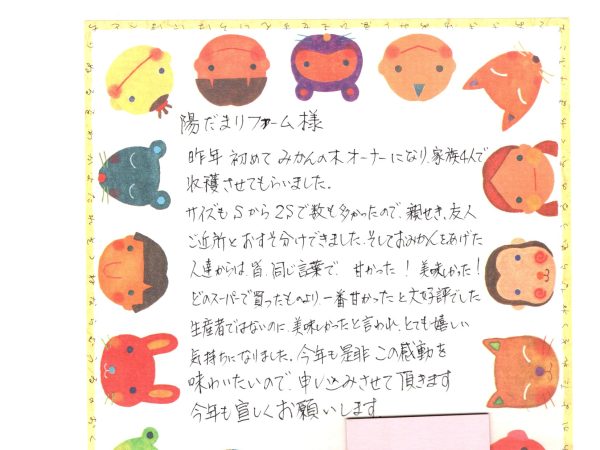 陽だまりファーム様
昨年 初めて みかんの木オーナーになり、家族4人で
収穫させてもらいました。
サイズも Sから2Sで数も多かったので、親せき、友人
ご近所とおすそ分けできました。そしておみかんをあげた
人達からは、皆、同じ言葉で、甘かった！ 美味しかった！
どのスーパーで買ったものより、一番甘かったと大好評でした
生産者ではないのに、美味しかったと言われ、とても嬉しい
気持ちになりました。今年も是非 この感動を
味わいたいので、申し込みさせて頂きます
今年も宜しくお願いします